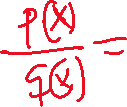 \frac{p(x)}{q(x)} =